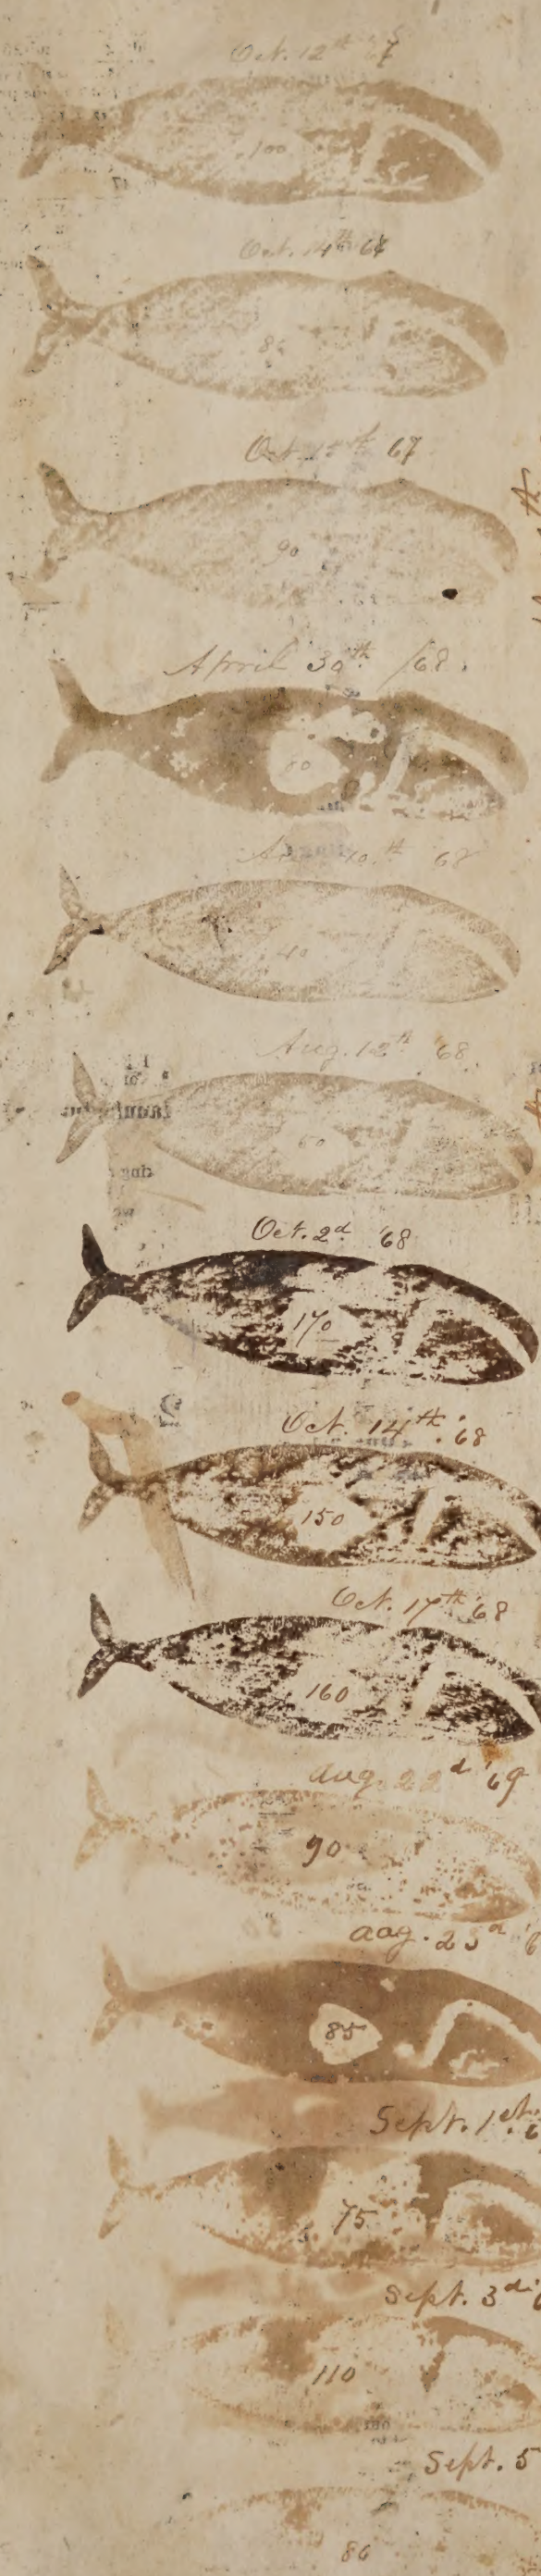 Oct. 12th
100
Oct. 14th 67
Oct. 67
90
April 30th /68.
80
10th 68
40
Aug. 12th '68
60
Oct. 2d '68
170
Oct. 14th '68
150
Oct. 17th '68
160
Aug. 22d '69
90
Aug. 23d '6
85
Sept. 1st. 6
75
Sept. 3d
110
Sept. 5
86